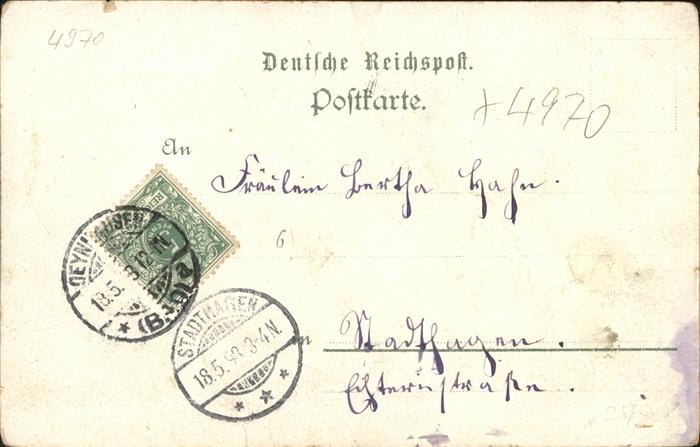 4970
Deutsche Reichspost.
Postkarte.
+4970
An
Fräulein Bertha Hahn.
6
OEYNHAUSEN
18.5. 12-N
(BHF)
STADTHAGEN
18.5.98 3-4N.
in Stadthagen.
Echternstraße.